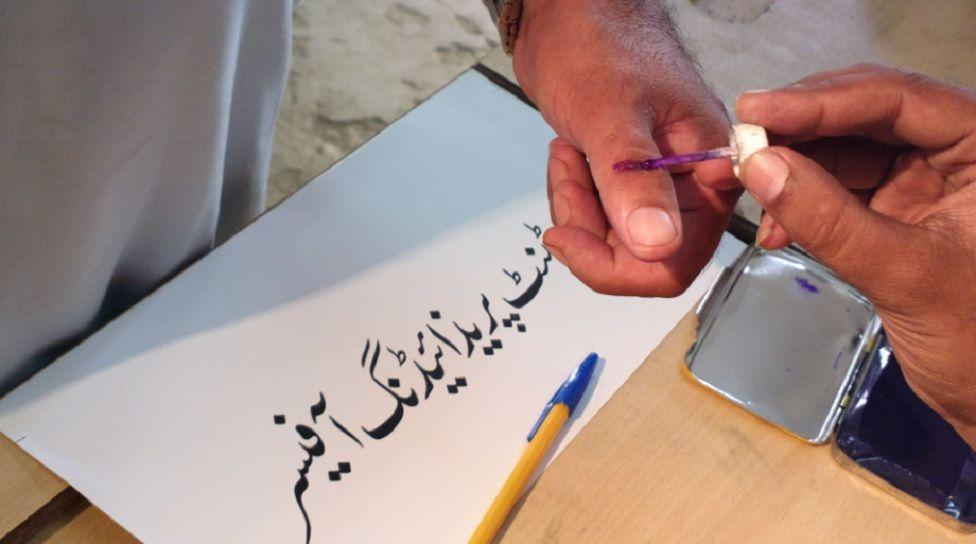 ٹنٹ پریذائیڈنگ آفیسر